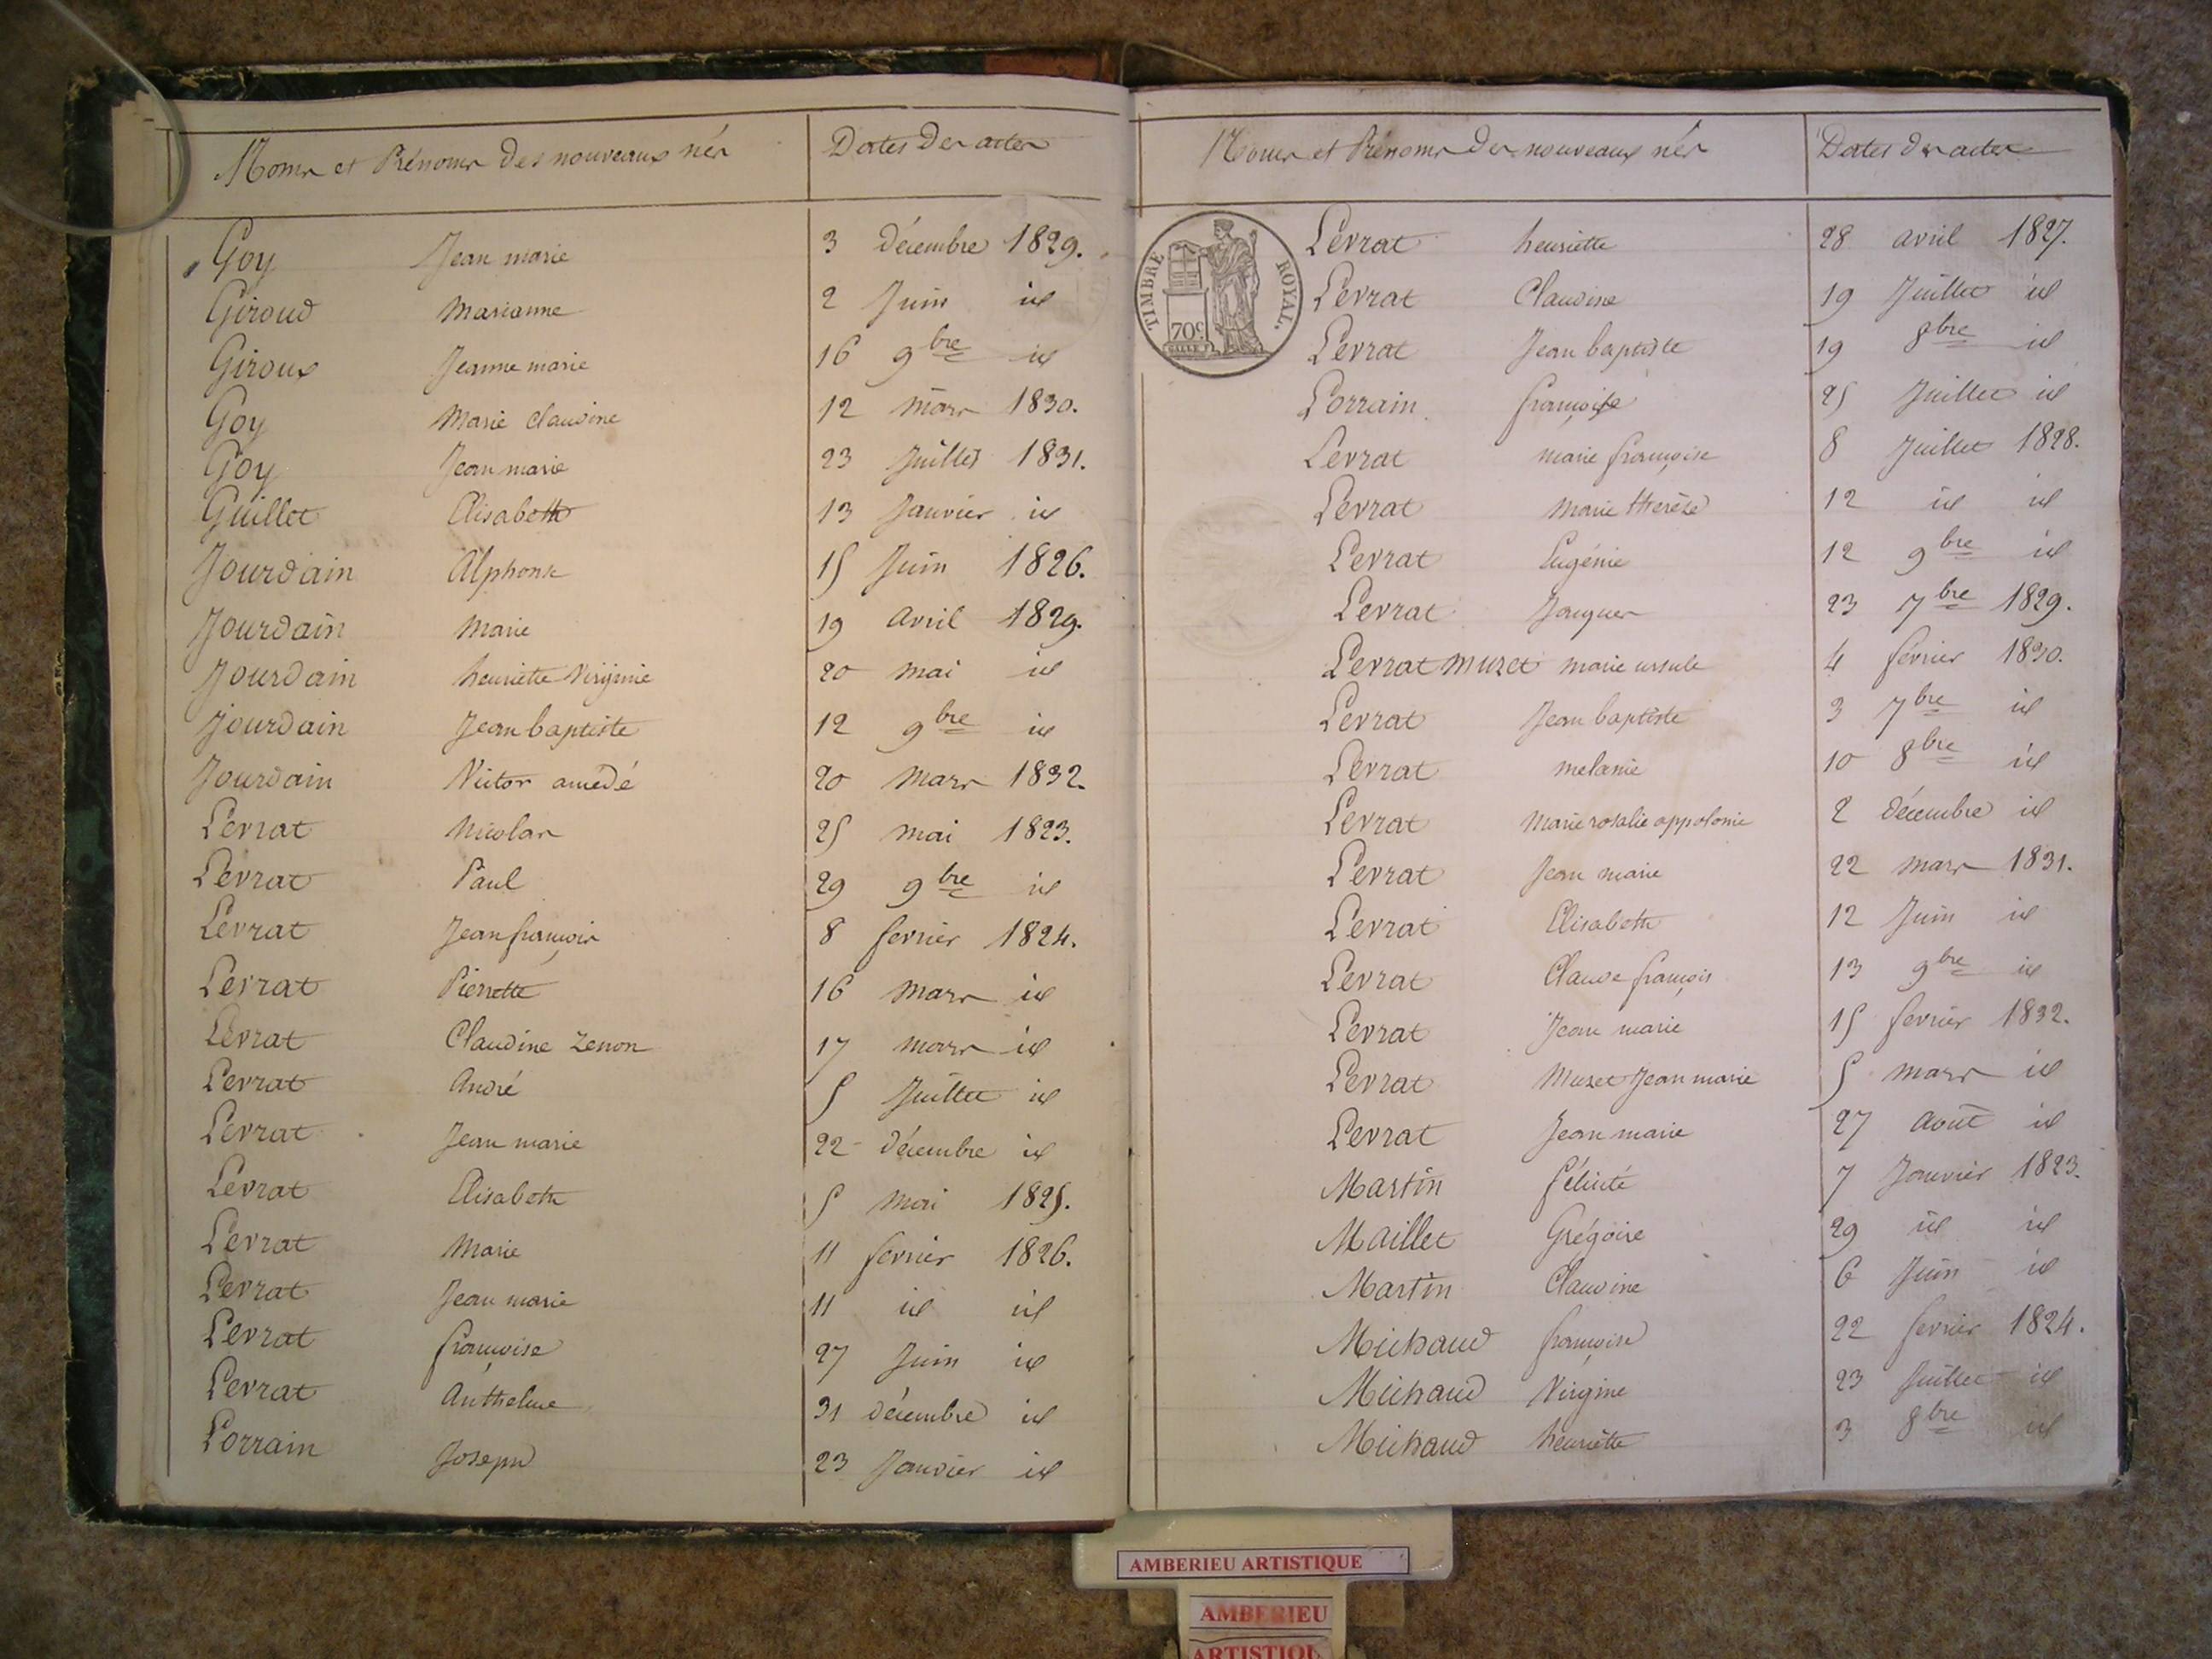 Noms et Prénoms des nouveaux nés Dates des actes
Goy Jean marie 3 décembre 1829.
Giroud Marianne 2 Juin id
Giroux Jeanne marie 16 9bre id
Goy Marie claudine 12 mars 1830.
Goy Jean marie 23 Juillet 1831.
Guillot Elisabeth 13 Janvier id
Jourdain Alphonse 15 Juin 1826.
Jourdain Marie 19 avril 1829.
Jourdain henriette Virginie 20 mai id
Jourdain Jean baptiste 12 9bre id
Jourdain Victor amédé 20 mars 1832.
Levrat Nicolas 25 mai 1823.
Levrat Paul 29 9bre id
Levrat Jean françois 8 fevrier 1824.
Levrat Pierrette 16 mars id
Levrat Claudine Zenon 17 mars id
Levrat André 5 Juillet id
Levrat Jean marie 22 décembre id
Levrat Elisabeth 5 mai 1825.
Levrat Marie 11 fevrier 1826.
Levrat Jean marie 11 id id
Levrat françoise 27 Juin id
Levrat Anthelme 31 décembre id
Lorrain Joseph 23 Janvier id
Noms et Prénoms des nouveaux nés Dates des actes
TIMBRE ROYAL.
70c
Levrat henriette 28 avril 1827.
Levrat Claudine 19 Juillet id
Levrat Jean baptiste 19 8bre id
Lorrain françoise 25 Juillet id
Levrat marie françoise 8 Juillet 1828.
Levrat Marie therèse 12 id id
Levrat Eugénie 12 9bre id
Levrat Jacques 23 7bre 1829.
Levrat muzet marie ursule 4 février 1830.
Levrat Jean baptiste 3 7bre id
Levrat melanie 10 8bre id
Levrat Marie rosalie appolonie 2 décembre id
Levrat Jean marie 22 mars 1831.
Levrat Elisabeth 12 Juin id
Levrat Claude françois 13 9bre id
Levrat Jean marie 15 fevrier 1832.
Levrat Muzet Jean marie 5 mars id
Levrat Jean marie 27 août id
Martin félicité 7 Janvier 1823.
Maillet Grégoire 29 id id
Martin Claudine 6 Juin id
Michaud françoise 22 fevrier 1824.
Michaud Virginie 23 Juillet id
Michaud henriette 3 8bre id
AMBERIEU ARTISTIQUE
AMBERIEU
ARTISTIQU